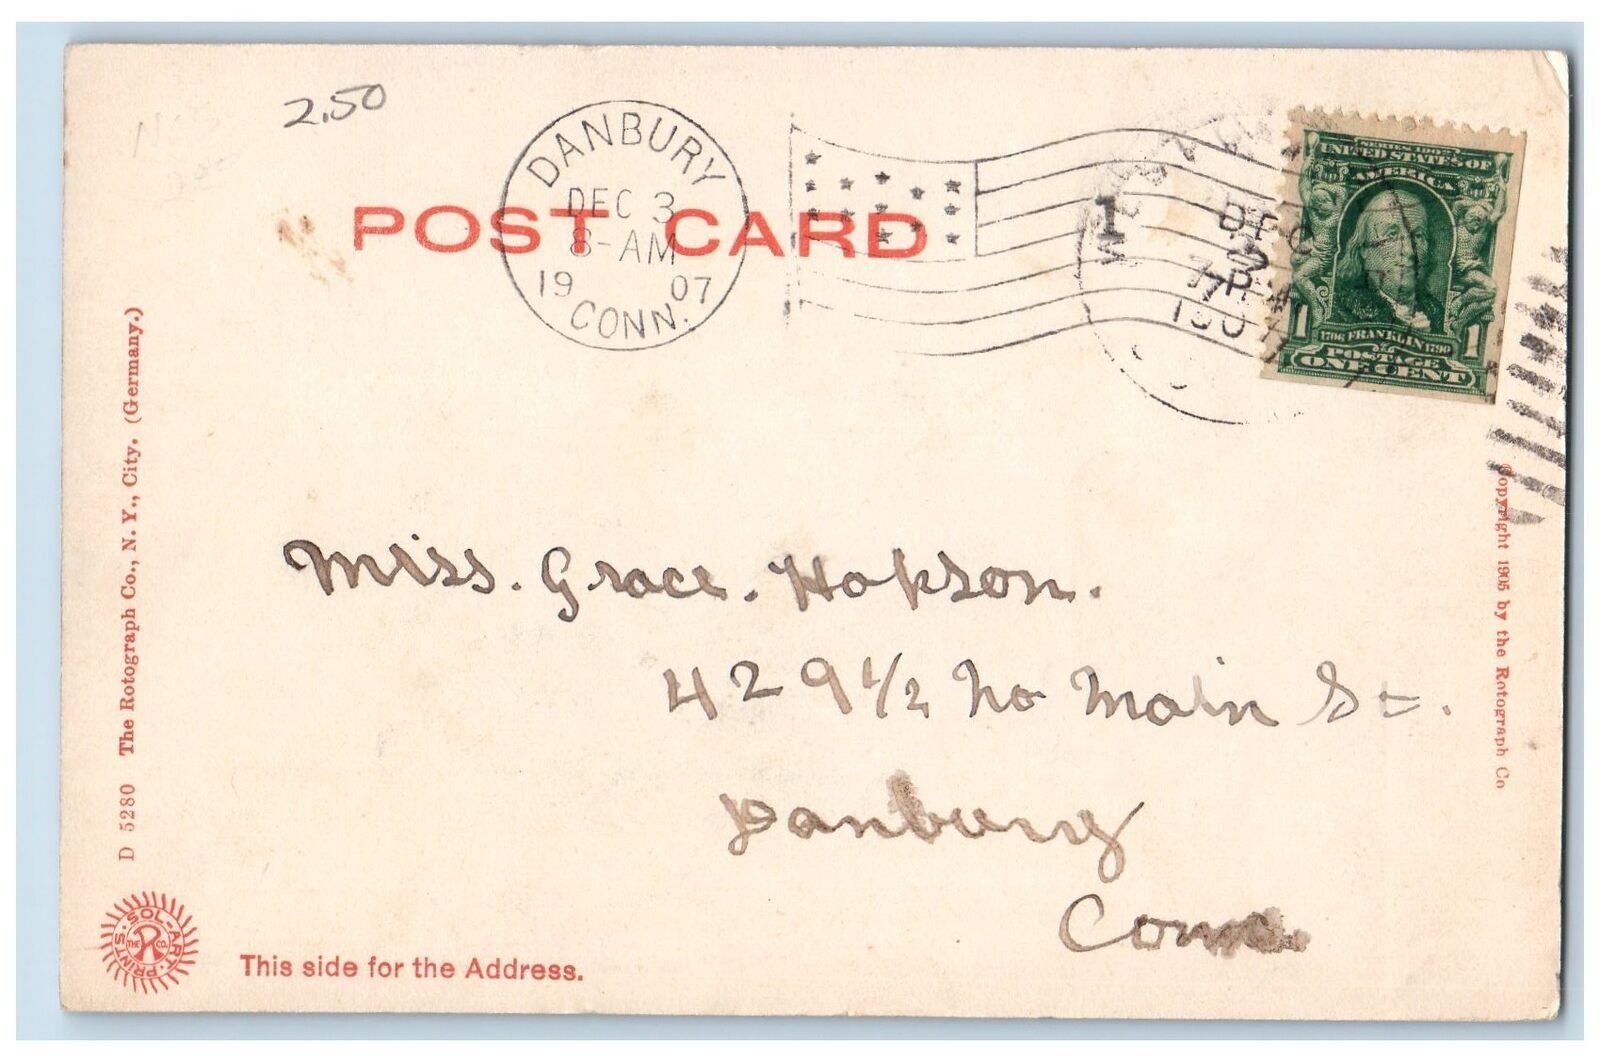 2.50
DANBURY
DEC 3
8-AM
19 07
CONN.
POST CARD
1
DEC
2
7 PM
1907
SERIES 1902
UNITED STATES OF
AMERICA
1706 FRANKLIN 1790
1 1
POSTAGE
ONE CENT
Miss. Grace. Hokson.
429 1/2 No Main St.
Danbury
Conn.
D 5280 The Rotograph Co., N. Y., City. (Germany.)
Copyright 1905 by the Rotograph Co
SOL-ART PRINTS
THE R CO.
This side for the Address.